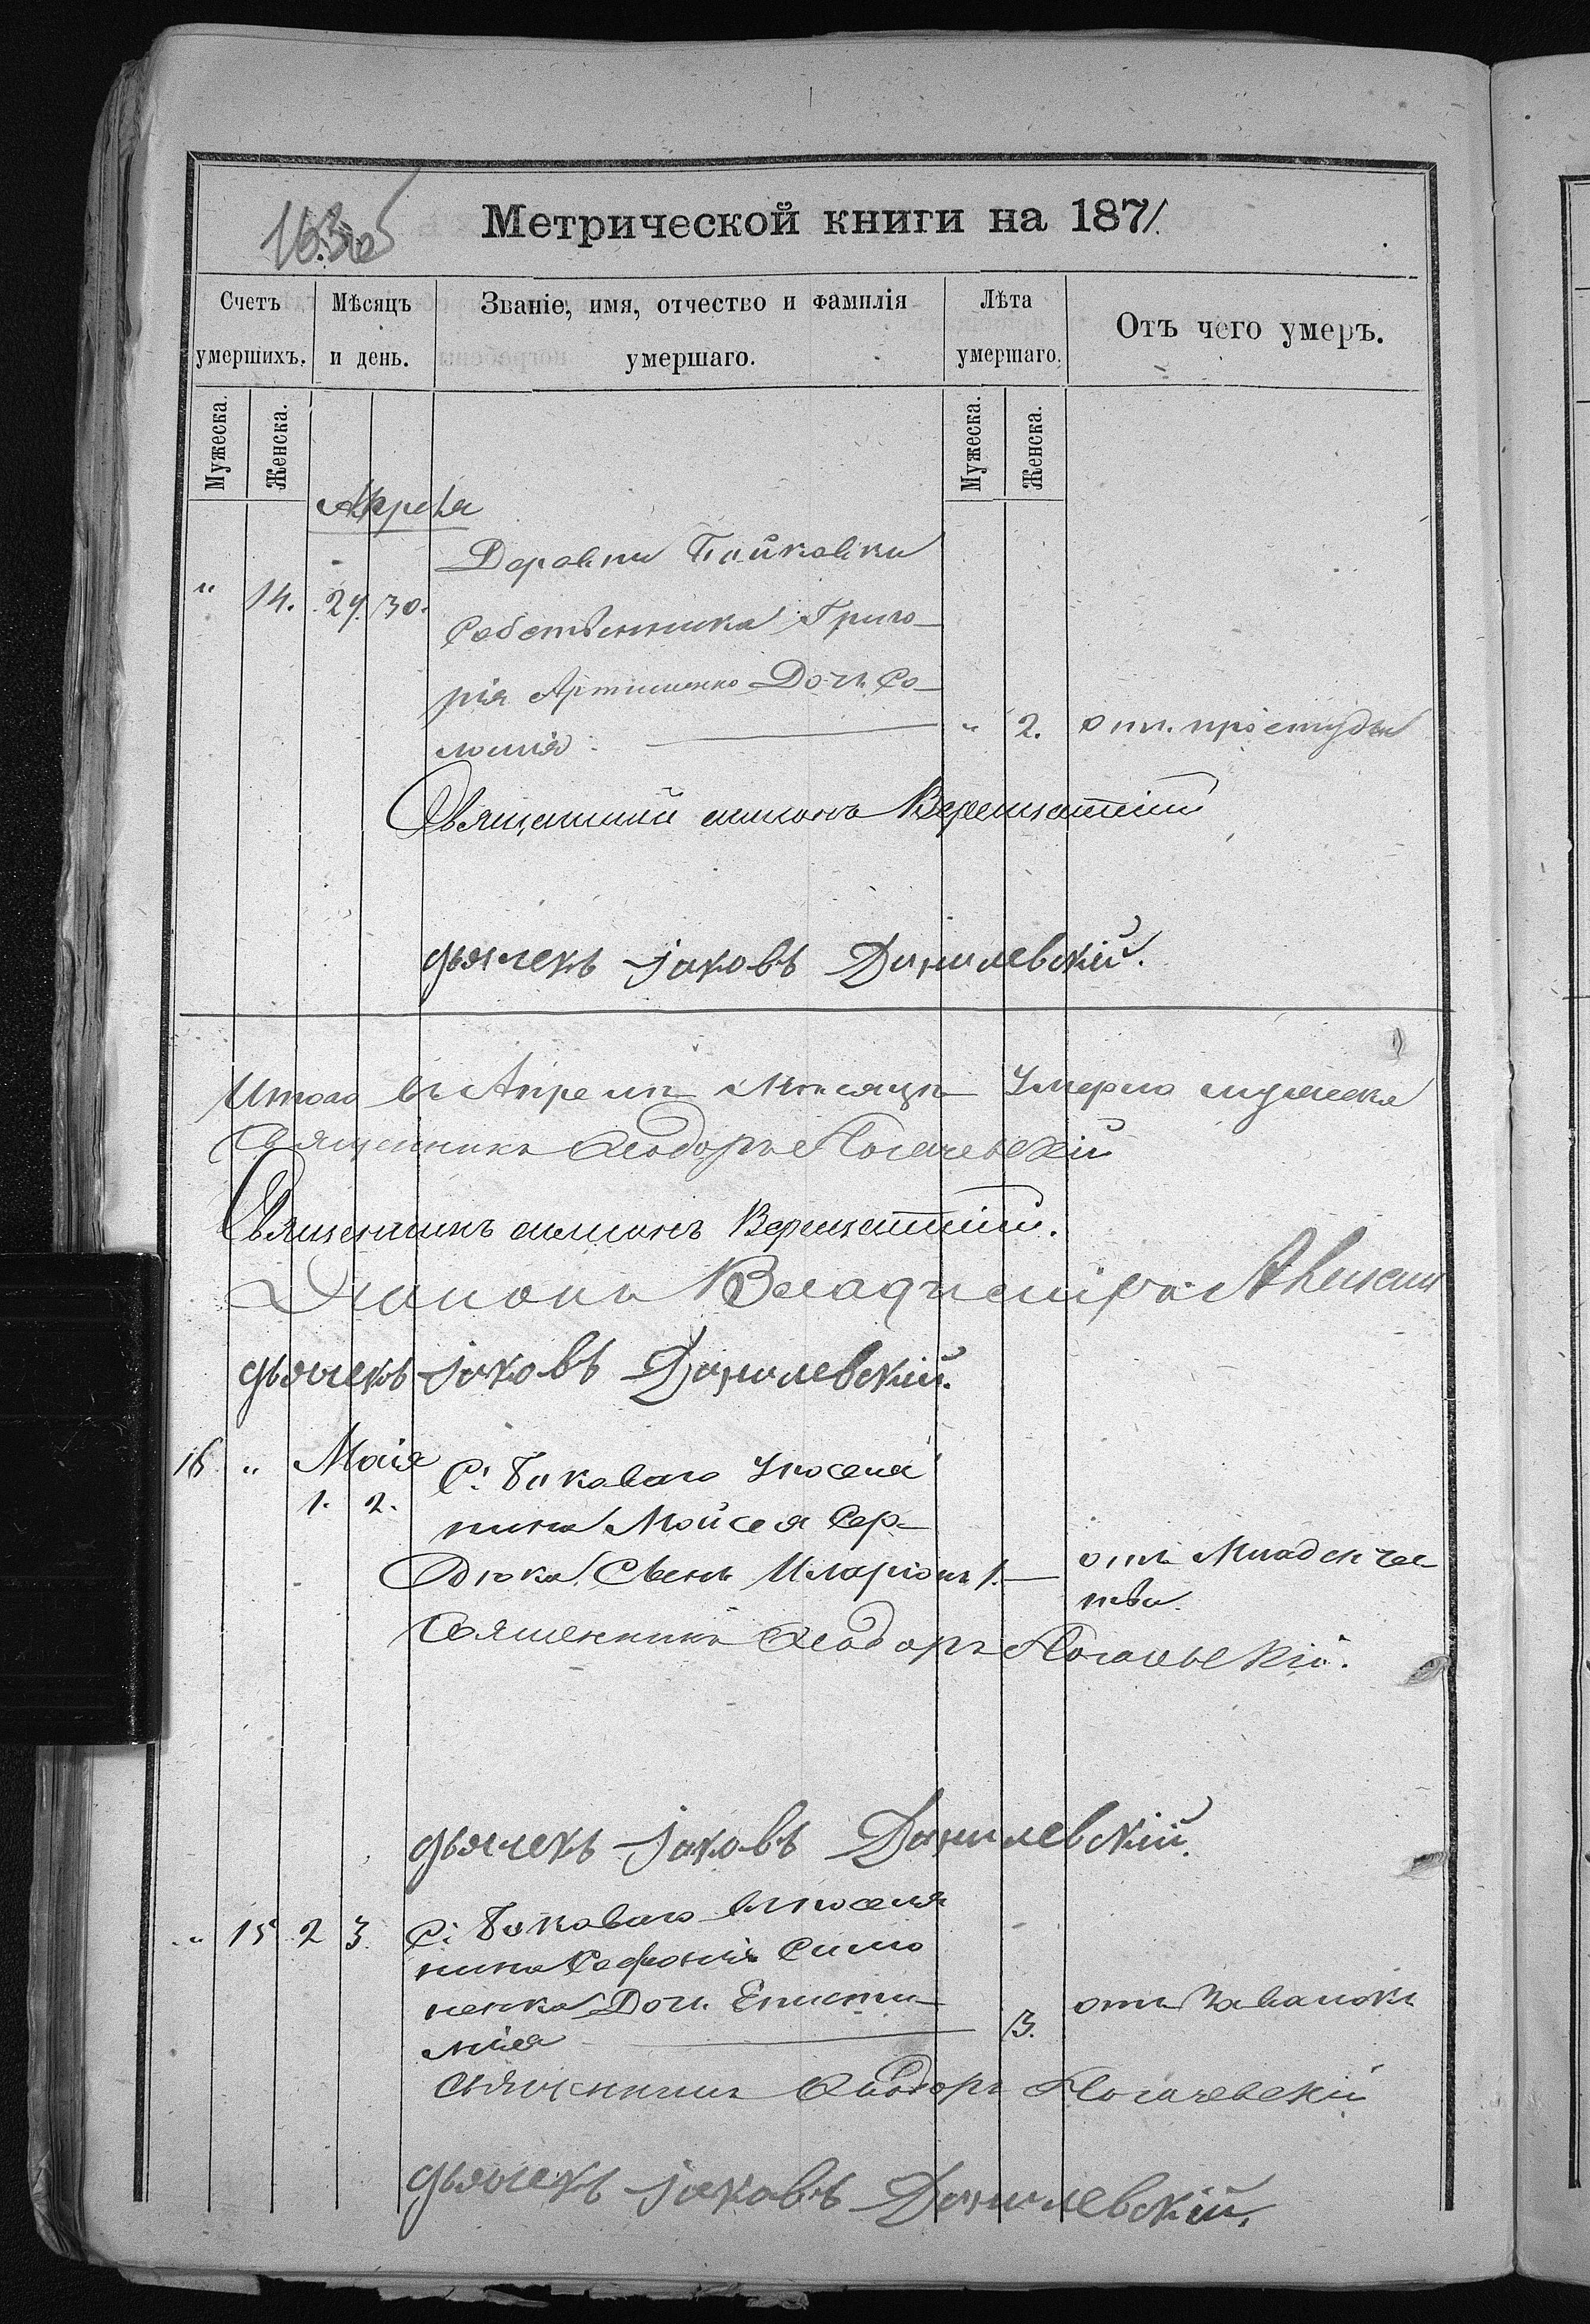 163 об
Метрической книги на 1871.
Счетъ умершихъ.
Мѣсяцъ и день.
Званіе, имя, отчество и фамилія умершаго.
Лѣта умершаго.
Отъ чего умеръ.
Мужеска. Женска. Мужеска. Женска.
Апреля
Деревни
" 14. 29. 30. Собственника Григо-
рія Артюшенко Дочь Со-
ломія " 2. отъ простуды
Священникъ Симеонъ
дьячекъ Іаковъ Данилевскій.
Итого въ Апреле Месяце Умерло мужеска
Священникъ Феодоръ
Священникъ Симеонъ
Діаконъ Владиміръ
дьячекъ Іаковъ Данилевскій.
16 " Маія С. Биковаго Упоселя
1. 2. нина Мойсея Сер-
дюка Сынъ Иларіонъ 1. — отъ Младенчес
тва
Священникъ Феодоръ
дьячекъ Іаковъ Данилевскій.
" 15 2 3. С. Биковаго
нина Софонія Симо
ненка Дочь Еписти-
мія 3. отъ
Священникъ Феодоръ
дьячекъ Іаковъ Данилевскій.